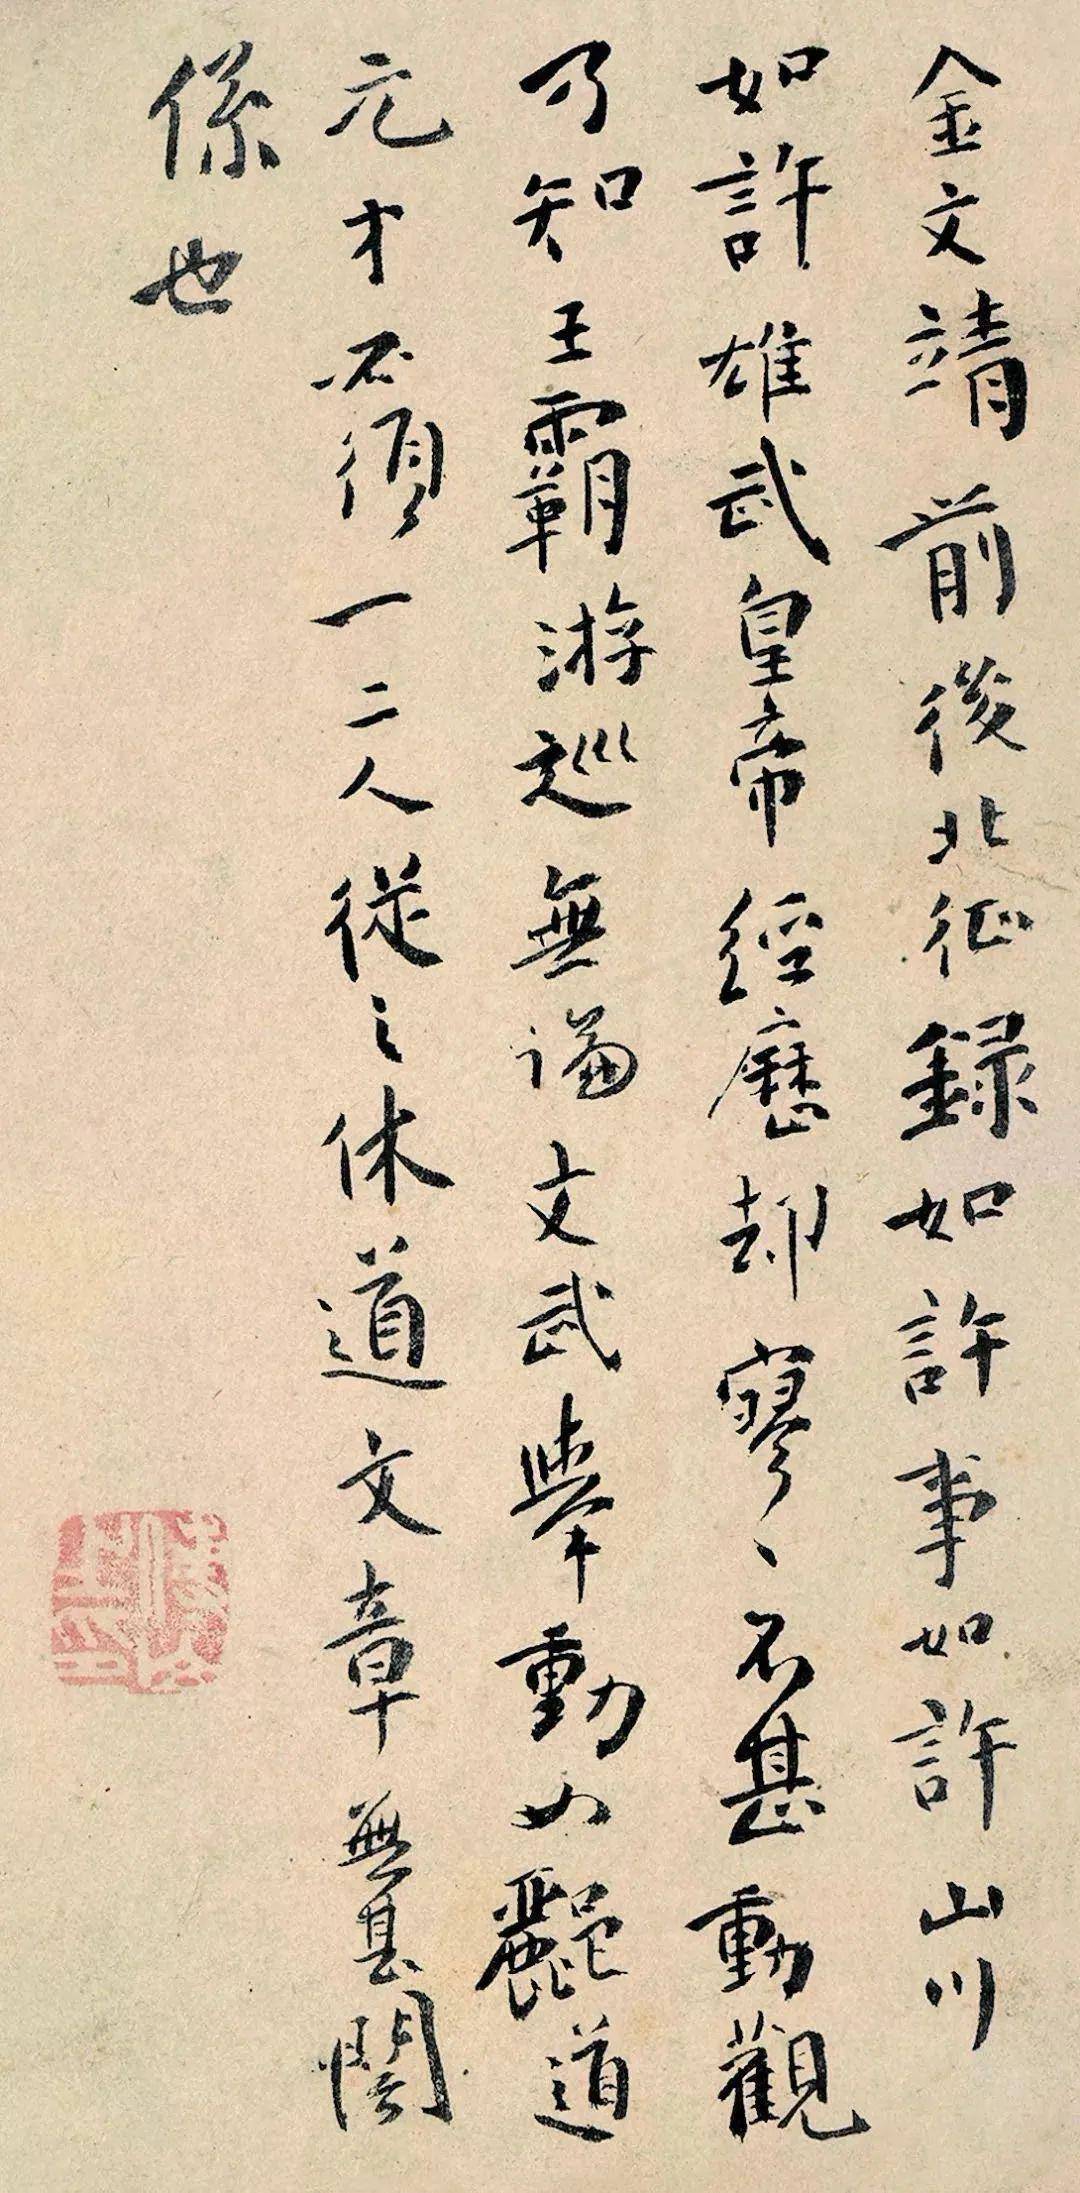 金文靖前後北征録如許事如許山川
如許雄武皇帝經歷却寥〻不甚動觀
乃知王霸游巡無論文武舉動如酈道
元才須一二人從之休道文章無甚關
係也